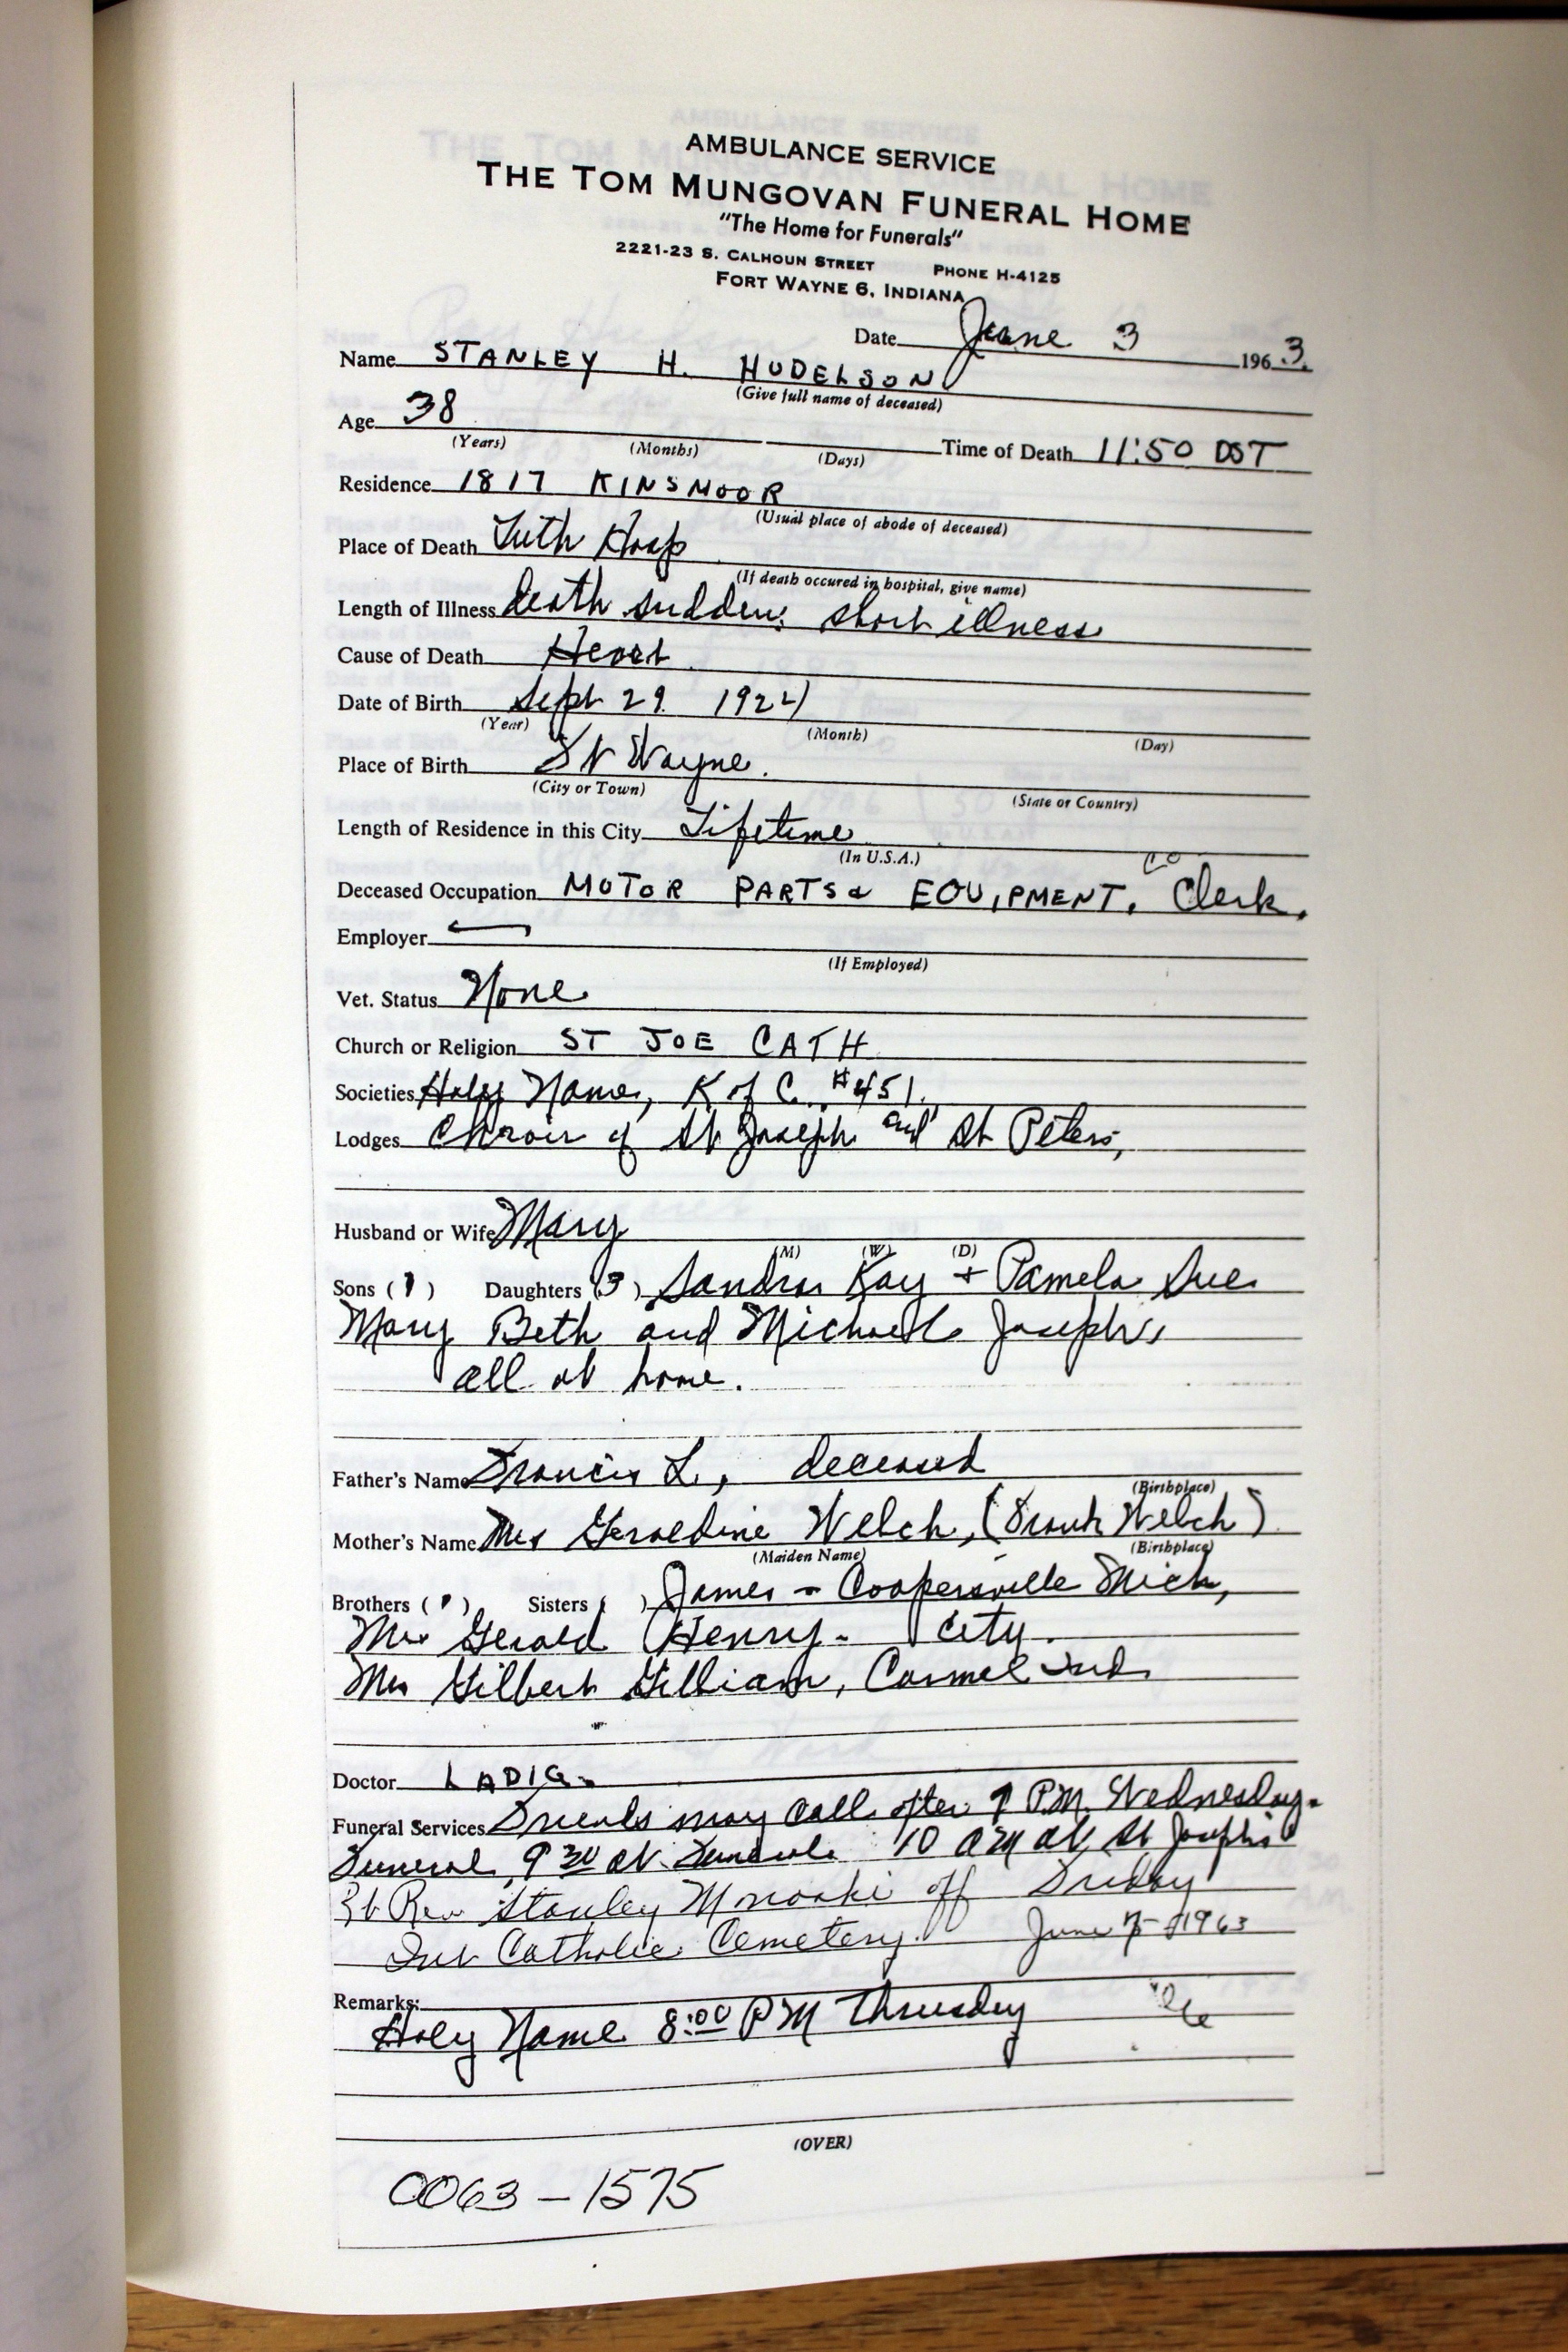 AMBULANCE SERVICE
THE TOM MUNGOVAN FUNERAL HOME
"The Home for Funerals"
2221-23 S. CALHOUN STREET PHONE H-4125
FORT WAYNE 6, INDIANA
Date June 3 1963.
Name STANLEY H. HUDELSON
(Give full name of deceased)
Age 38 Time of Death 11:50 DST
(Years) (Months) (Days)
Residence 1817 KINSMOOR
(Usual place of abode of deceased)
Place of Death Luth Hosp
(If death occured in hospital, give name)
Length of Illness death sudden; short illness
Cause of Death Heart
Date of Birth Sept 29 1924
(Year) (Month) (Day)
Place of Birth Ft Wayne.
(City or Town) (State or Country)
Length of Residence in this City Lifetime
(In U.S.A.)
Deceased Occupation MOTOR PARTS & EQUIPMENT, Co Clerk.
Employer
(If Employed)
Vet. Status None
Church or Religion ST JOE CATH
Societies Holy Name, K of C. #451.
Lodges Choir of St Joseph and St Peters,
Husband or Wife Mary
(M) (W) (D)
Sons (1) Daughters (3) Sandra Kay + Pamela Sue
Mary Beth and Michael Joseph,
all at home.
Father's Name Francis L., deceased
(Birthplace)
Mother's Name Mrs Geraldine Welch, (Frank Welch)
(Maiden Name) (Birthplace)
Brothers (1) Sisters ( ) James - Coopersville Mich,
Mrs Gerald Henry - City.
Mrs Gilbert Gilliam, Carmel Ind.
Doctor LADIG
Funeral Services Friends may call after 7 P.M. Wednesday.
Funeral 9 30 at Funeral 10 AM at St Joseph's
Rt Rev Stanley off Friday
Int Catholic Cemetery. June 7 - 1963
Remarks:
Holy Name 8:00 PM Thrusday
(OVER)
0063-1575